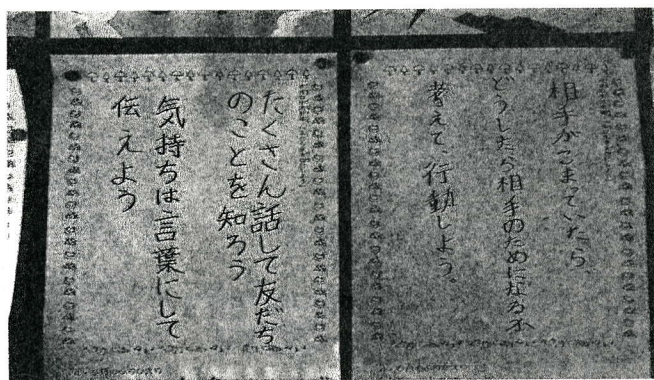 相手がこまっていたら
どうしたら相手のためになるか
考えて、行動しよう。
たくさん話して友だち
のことを知ろう
気持ちは言葉にして
伝えよう